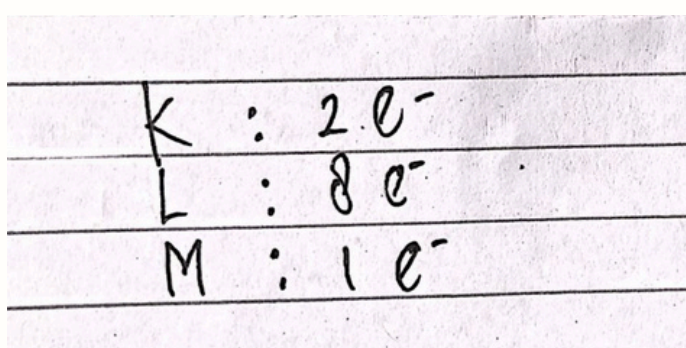 K : 2 e⁻
L : 8 e⁻
M : 1 e⁻